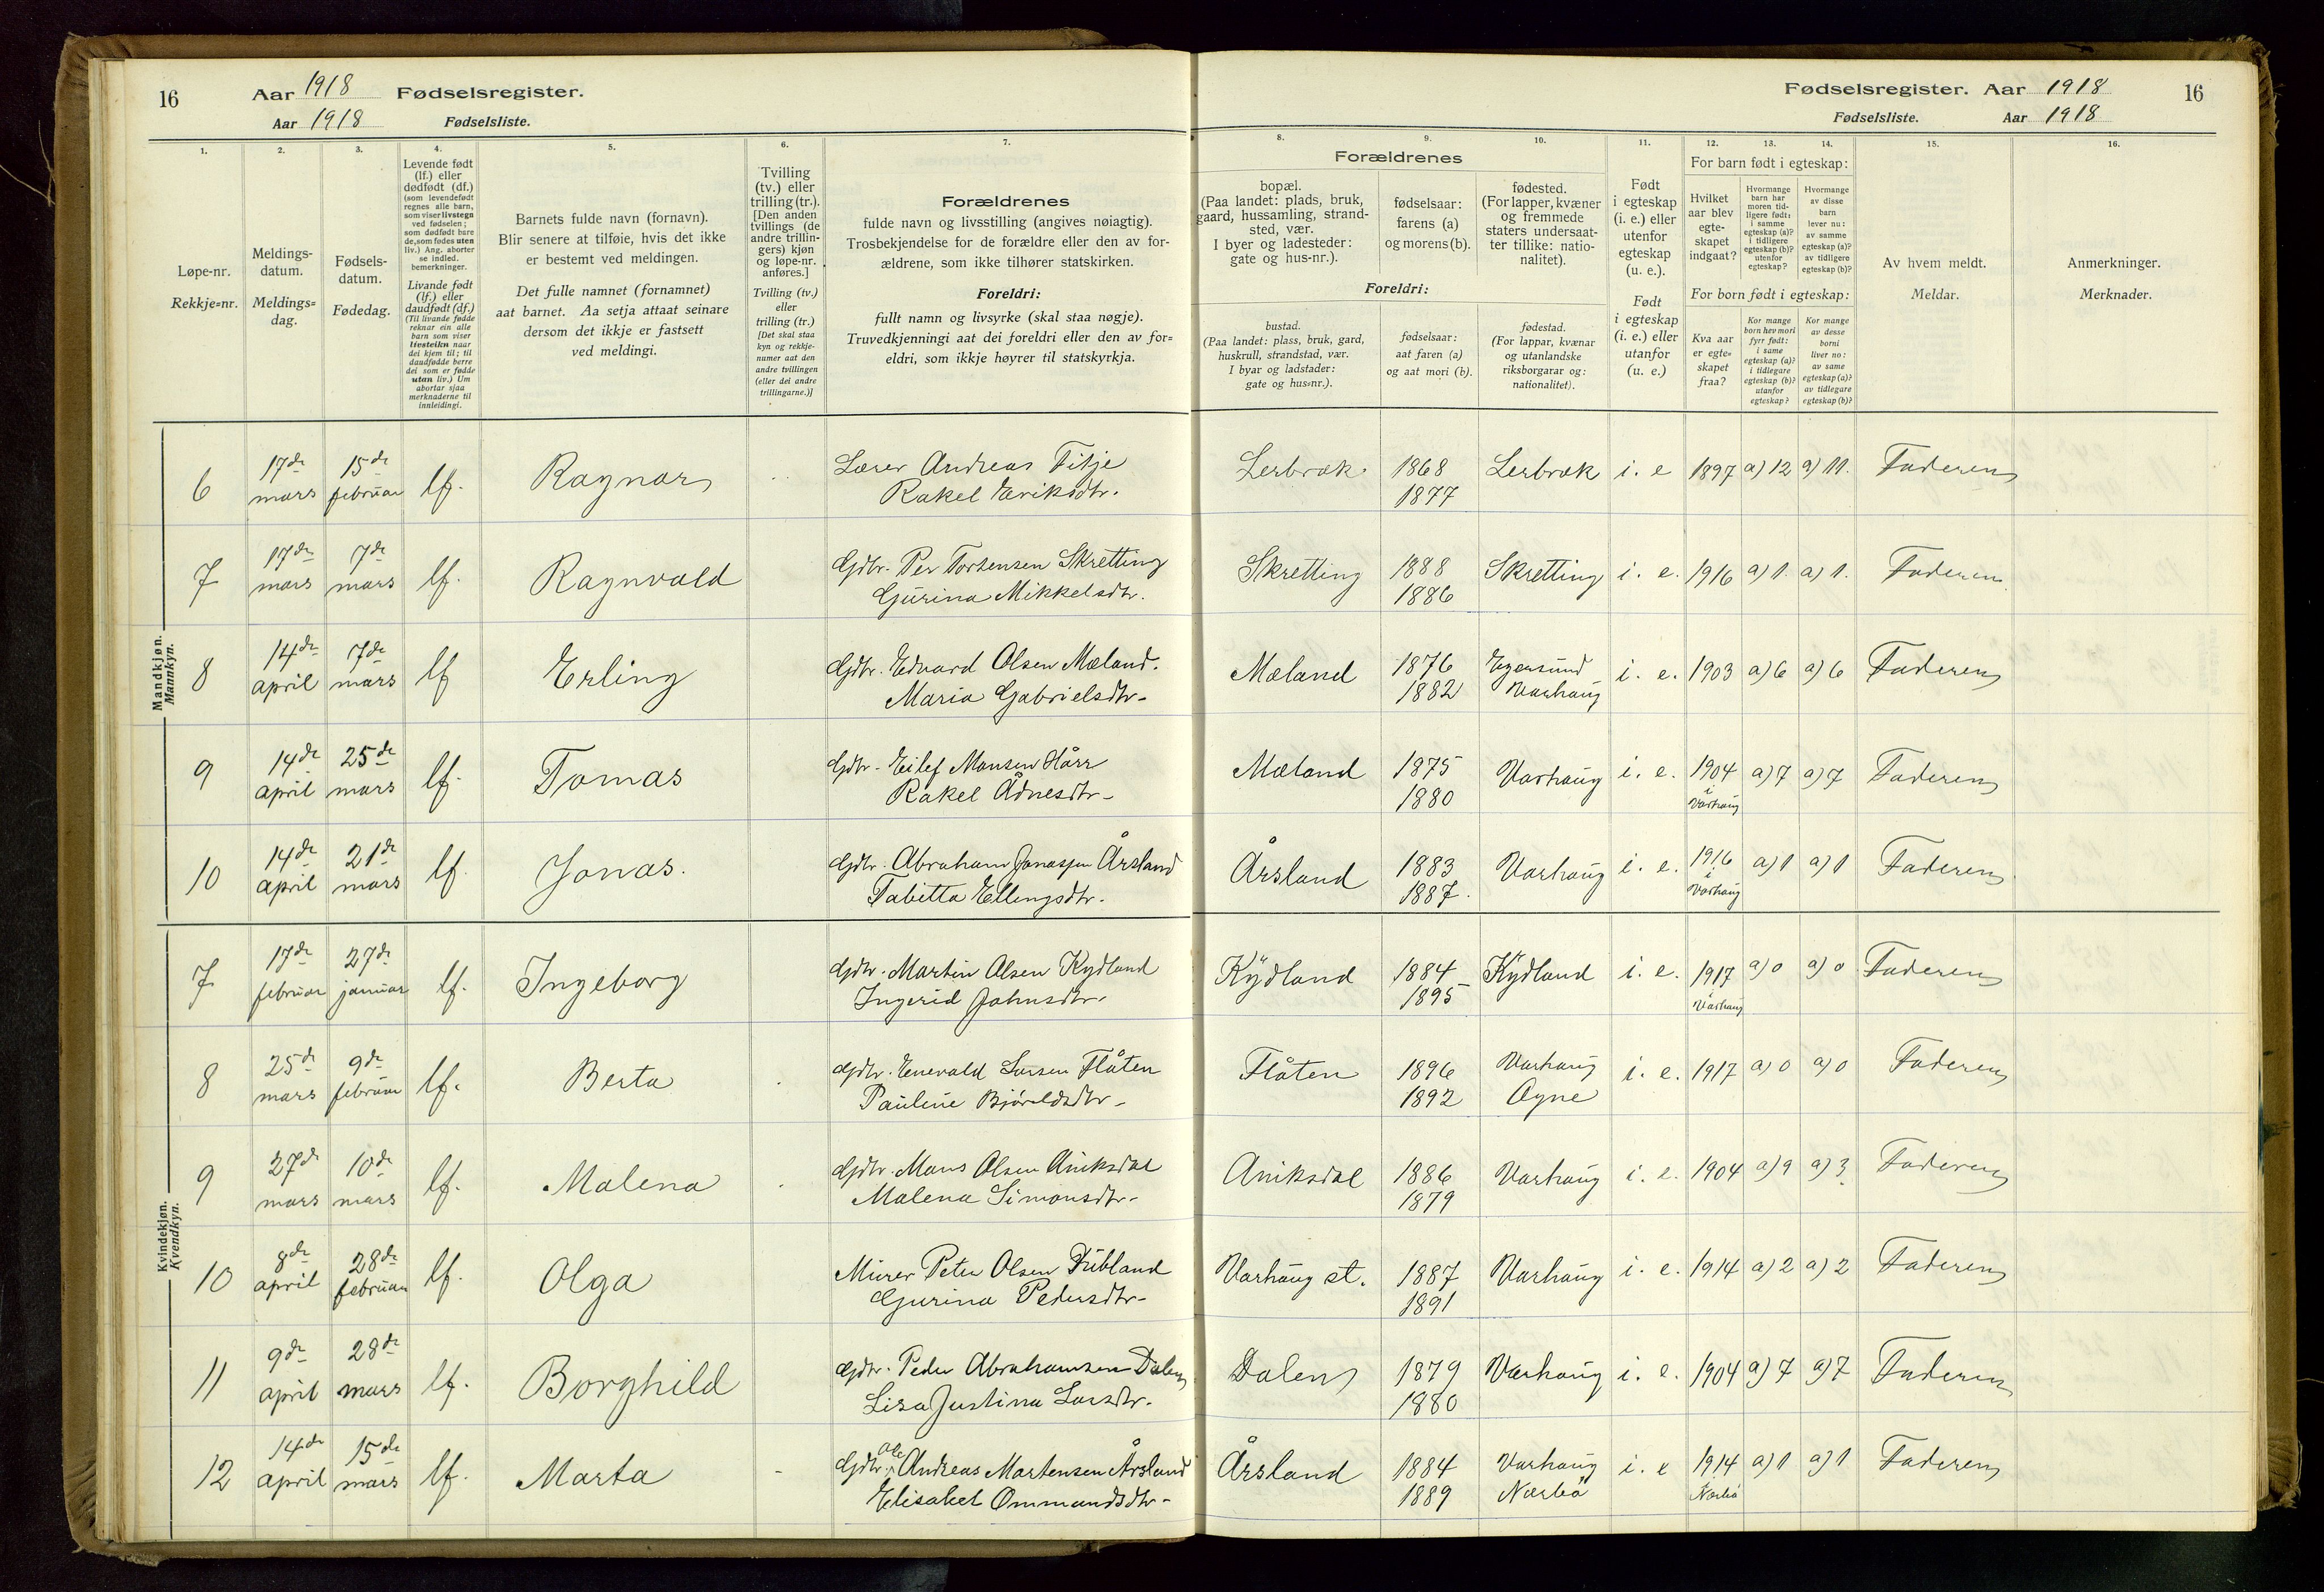 16 Aar 1918 Fødselsregister.
Aar 1918 Fødselsliste.
Fødselsregister. Aar 1918 16
Fødselsliste. Aar 1918
1. 2. 3. 4. 5. 6. 7. 8. 9. 10. 11. 12. 13. 14. 15. 16.
Løpe-nr.
Rekkje-nr.
Meldings-
datum.
Meldings-
dag.
Fødsels-
datum.
Fødedag.
Levende født
(lf.) eller
dødfødt (df.)
(som levendefødt
regnes alle barn,
som viser livstegn
ved fødselen;
som dødfødt bare
de, som fødes uten
liv.) Ang. aborter
se indled.
bemerkninger.
Livande født
(lf.) eller
daudfødt (df.)
(Til livande fødde
reknar ein alle
barn som viser
livsteikn naar
dei kjem til; til
daudfødde berre
dei som er fødde
utan liv.) Um
abortar sjaa
merknaderne til
innleidingi.
Barnets fulde navn (fornavn).
Blir senere at tilføie, hvis det ikke
er bestemt ved meldingen.
Det fulle namnet (fornamnet)
aat barnet. Aa setja attaat seinare
dersom det ikkje er fastsett
ved meldingi.
Tvilling
(tv.) eller
trilling (tr.).
[Den anden
tvillings (de
andre trillin-
gers) kjøn
og løpe-nr.
anføres.]
Tvilling (tv.)
eller
trilling (tr.)
[Det skal staa
kyn og rekkje-
numer aat den
andre tvillingen
(eller dei andre
trillingarne.)]
Forældrenes
fulde navn og livsstilling (angives nøiagtig).
Trosbekjendelse for de forældre eller den av for-
ældrene, som ikke tilhører statskirken.
Foreldri:
fullt namn og livsyrke (skal staa nøgje).
Truvedkjenningi aat dei foreldri eller den av for-
eldri, som ikkje høyrer til statskyrkja.
Forældrenes
bopæl.
(Paa landet: plads, bruk,
gaard, hussamling, strand-
sted, vær.
I byer og ladesteder:
gate og hus-nr.).
fødselsaar:
farens (a)
og morens (b).
fødested.
(For lapper, kvæner
og fremmede
staters undersaat-
ter tillike: natio-
nalitet).
Foreldri:
bustad.
(Paa landet: plass, bruk, gard,
huskrull, strandstad, vær.
I byar og ladstader:
gate og hus-nr.).
fødselsaar:
aat faren (a)
og aat mori (b).
fødestad.
(For lappar, kvænar
og utanlandske
riksborgarar og:
nationalitet).
Født
i egteskap
(i. e.) eller
utenfor
egteskap
(u. e.).
Født
i egteskap
(i. e.) eller
utanfor
(u. e.)
For barn født i egteskap:
Hvilket
aar blev
egte-
skapet
indgaat?
Hvormange
barn har
moren tid-
ligere født:
i samme
egteskap (a)?
i tidligere
egteskap (b)?
utenfor
egteskap?
Hvormange
av disse
barn
lever nu:
av samme
egteskap (a)?
av tidligere
egteskap (b)?
For born født i egteskap:
Kva aar
er egte-
skapet
fraa?
Kor mange
born hev mori
fyrr født:
i same
egteskap (a)?
i tidlegare
egteskap (b)?
utanfor
egteskap?
Kor mange
av desse
borni
liver no:
av same
egteskap (a)?
av tidlegare
egteskap (b)?
Av hvem meldt.
Meldar.
Anmerkninger.
Merknader.
Mandkjøn.
Mannkyn.
6 17de mars 15de februar lf. Ragnar Lærer Andreas Titje Lerbræk 1868 Lerbræk i. e 1897 a) 12 a) 11. Faderen
Rakel Eriksdtr. 1877
7 17de mars 7de mars lf. Ragnvald Gdbr. Per Torkensen Skretting Skretting 1888 Skretting i. e. 1916 a) 1. a) 1. Faderen
Gurina Mikkelsdtr. 1886
8 14de april 7de mars lf Erling Gdbr. Edvard Olsen Mæland. Mæland 1876 Egersund i. e. 1903 a) 6 a) 6 Faderen
Maria Gabrielsdtr- 1882 Varhaug
9 14de april 25de mars lf. Tomas Gdbr. Eilef Monsen Hårr Mæland 1875 Varhaug i. e. 1904 a) 7 a) 7 Faderen
Rakel Ådnesdtr- 1880 i Varhaug
10 14de april 21de mars lf. Jonas. Gdbr. Abraham Jonassen Årsland Årsland 1883 Varhaug i. e. 1916 a) 1 a) 1 Faderen
Tabitta Ellingsdtr. 1887. i Varhaug
Kvindekjøn.
Kvendkyn.
7 17de februar 27de januar lf. Ingeborg Gdbr. Martin Olsen Kydland Kydland 1884 Kydland i. e. 1917 a) 0 a) 0 Faderen
Ingerid Johnsdtr. 1895 Varhaug
8 25de mars 9de februar lf. Berta Gdbr. Enevald Larsen Flåten Flåten 1896 Varhaug i. e. 1917 a) 0 a) 0 Faderen
Pauline Bjoraldsdtr- 1892 Ogne
9 27de mars 10de mars lf. Malena Gdbr. Mons Olsen Aniksdal Aniksdal 1886 Varhaug i. e. 1904 a) 9 a) 3 Faderen
Malena Simonsdtr- 1879
10 8de april 28de februar lf. Olga Murer Peter Olsen Dubland Varhaug st. 1887 Varhaug i. e. 1914 a) 2 a) 2 Faderen
Gurina Pedersdtr- 1891
11 9de april 28de mars lf. Borghild Gdbr. Peder Abrahamsen Dalen Dalen 1879 Varhaug i. e. 1904 a) 7 a) 7 Faderen
Lisa Justina Larsdtr. 1880
12 14de april 15de mars lf. Marta Gdbr. Ole Andreas Martensen Årsland Årsland 1884 Varhaug i. e 1914 a) 1 a) 1 Faderen
Elisabet Ommundsdtr- 1889 Nærbö Nærbö